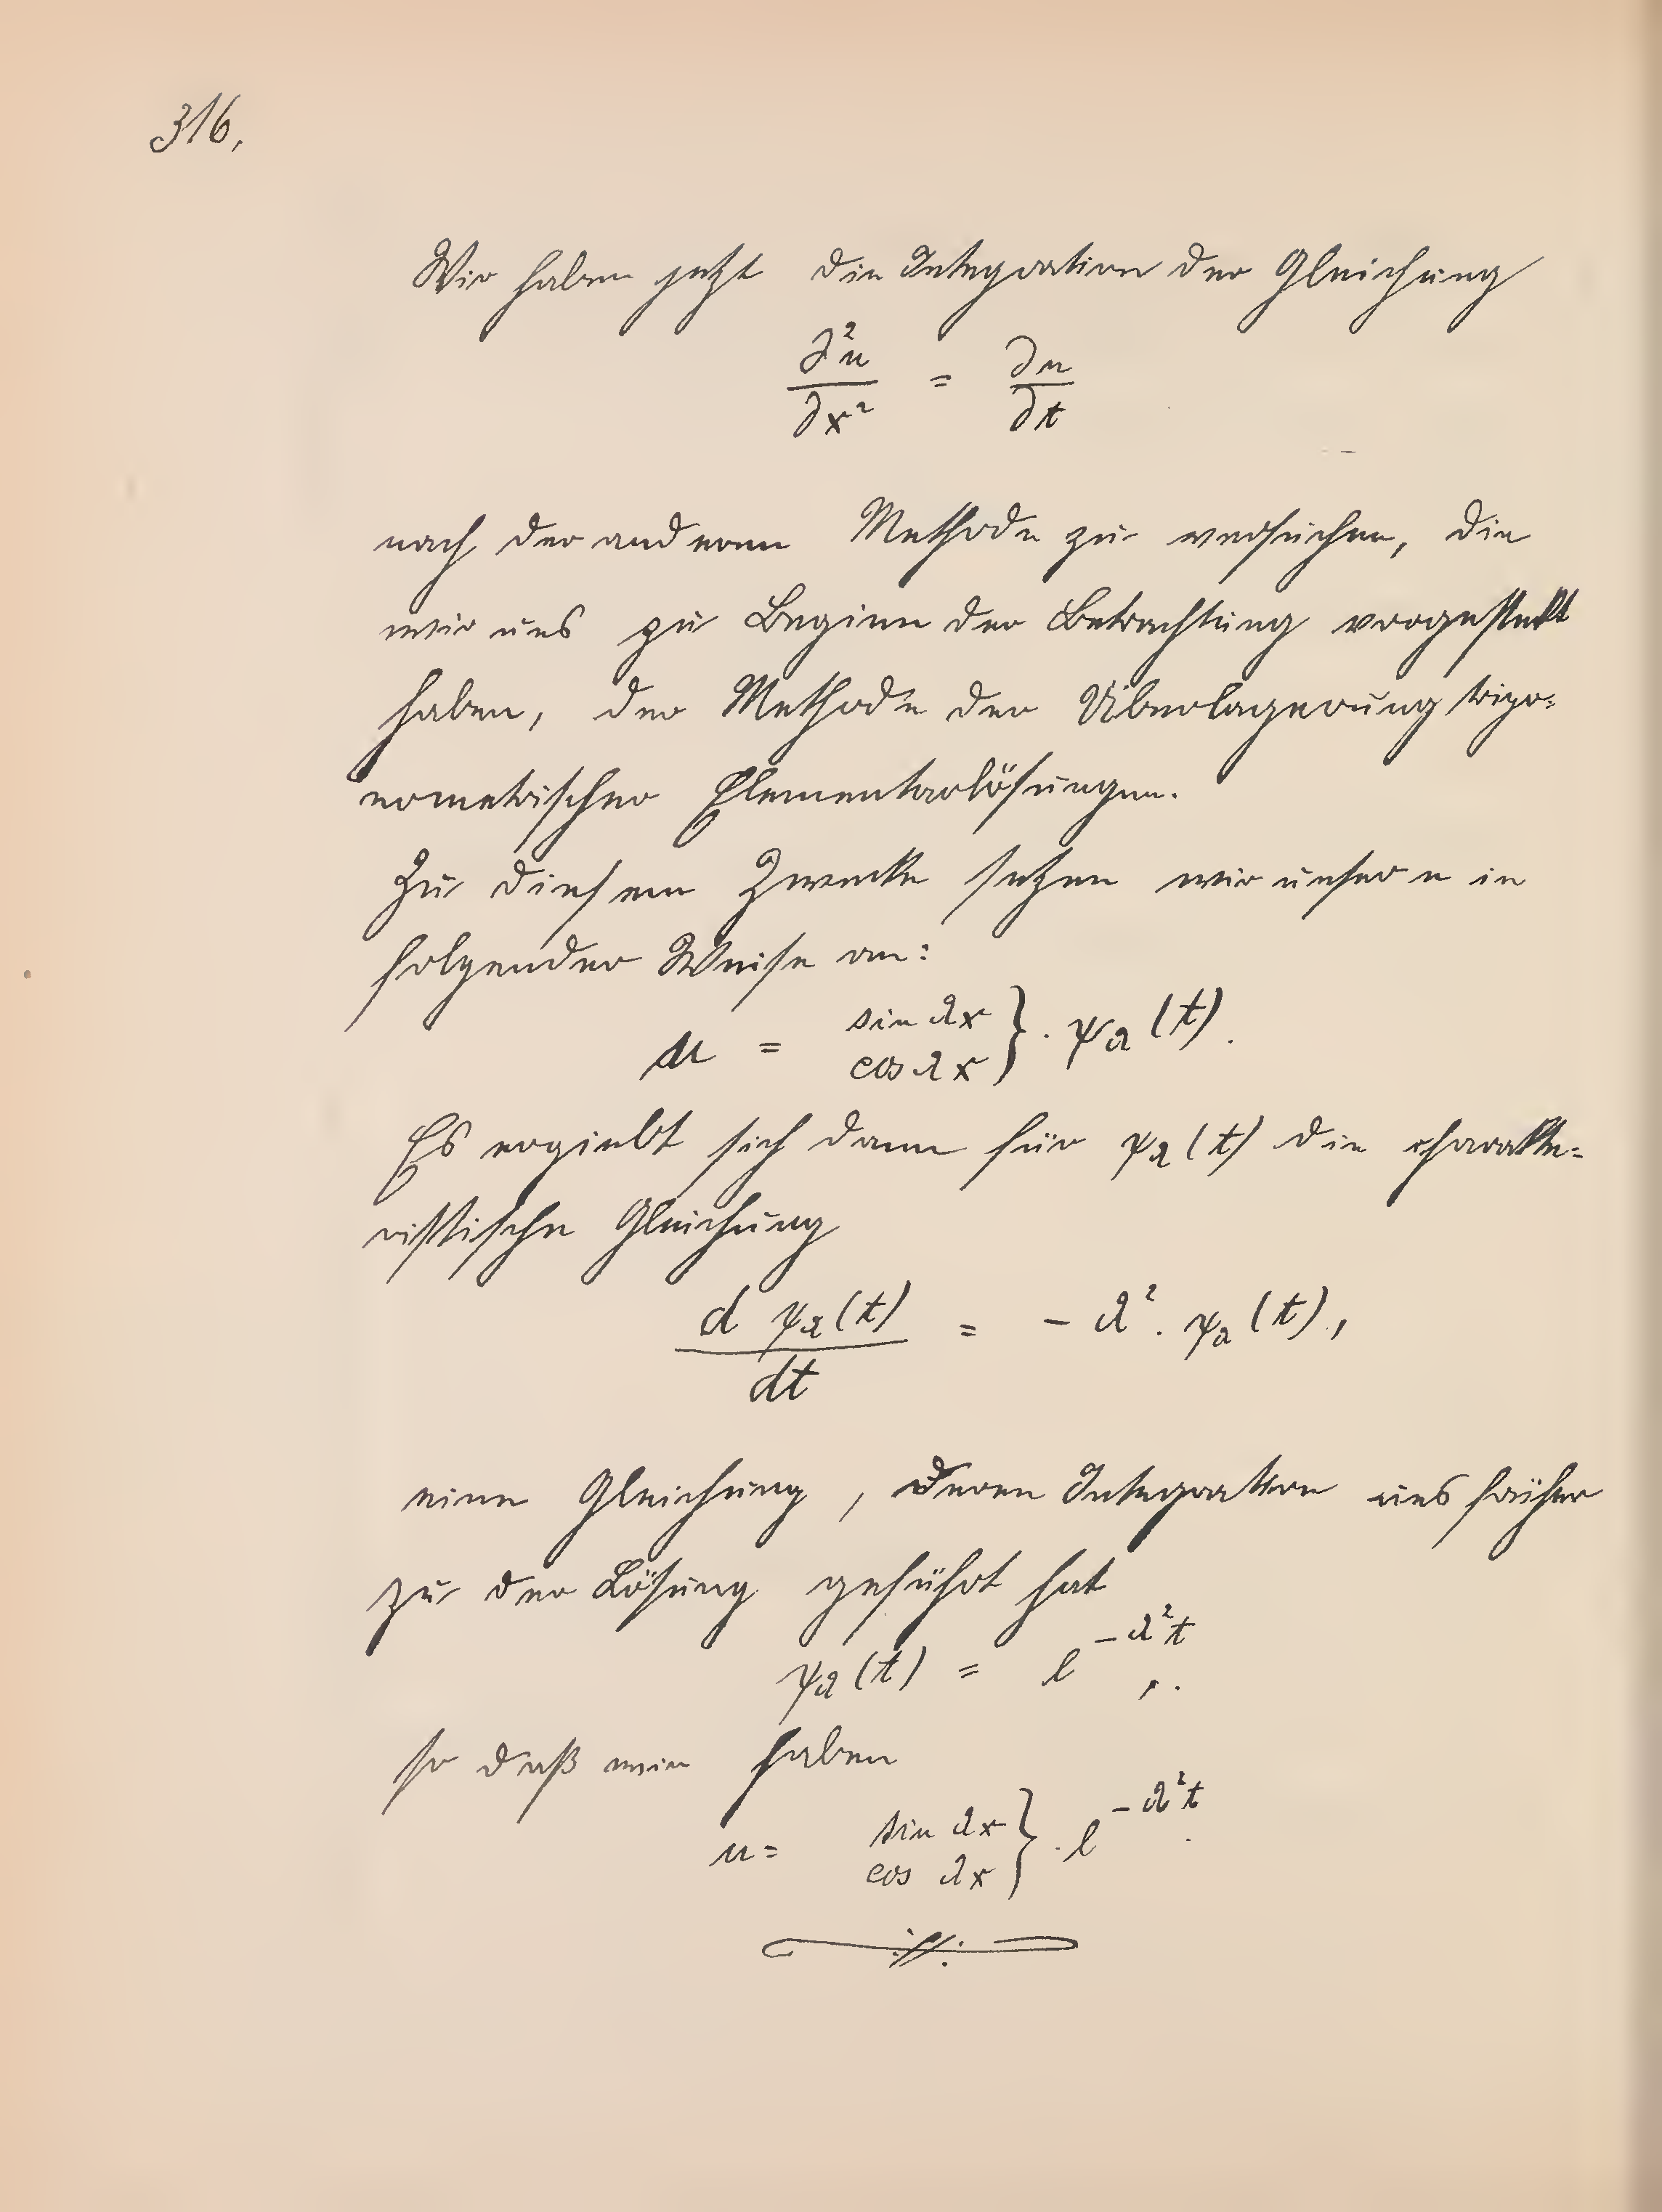 316.
Wir haben jetzt die Integration der Gleichung
∂²u/∂x² = ∂u/∂t
nach der anderen Methode zu versuchen, die
wir uns zu Beginn der Betrachtung vorgestellt
haben, der Methode der Überlagerung trigo=
nometrischer Elementarlösungen.
Zu diesem Zwecke setzen wir unser u in
folgender Weise an:
u = sin λx cos λx } · ψλ(t).
Es ergiebt sich dann für ψλ(t) die charakte=
ristische Gleichung
d ψλ(t)/dt = - λ² · ψλ(t),
eine Gleichung, deren Integration uns früher
zu der Lösung geführt hat
ψλ(t) = e^{-λ²t},.
so daß wir haben
u = sin λx cos λx } · e^{-λ²t}.